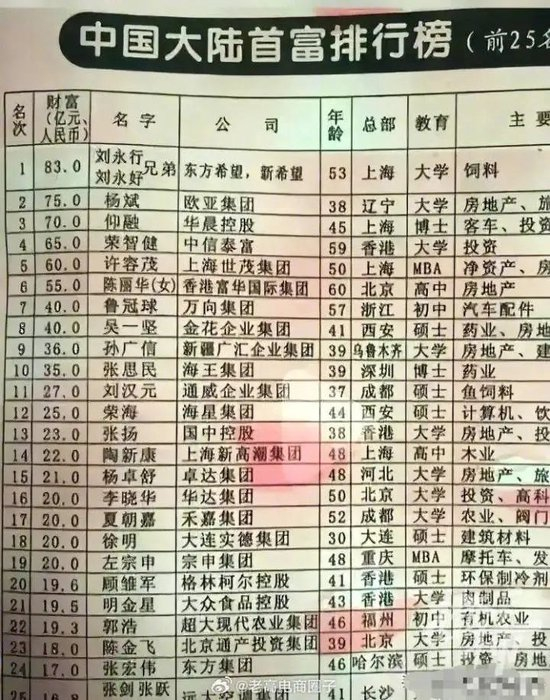 中国大陆首富排行榜(前25名
名次 财富(亿元、人民币) 名字 公司 年龄 总部 教育 主要
1 83.0 刘永行 刘永好 兄弟 东方希望,新希望 53 上海 大学 饲料
2 75.0 杨斌 欧亚集团 38 辽宁 大学 房地产、旅
3 70.0 仰融 华晨控股 45 上海 博士 客车、投资
4 65.0 荣智健 中信泰富 59 香港 大学 投资
5 60.0 许容茂 上海世茂集团 50 上海 MBA 净资产、房
6 55.0 陈丽华(女) 香港富华国际集团 60 北京 高中 房地产
7 40.0 鲁冠球 万向集团 57 浙江 初中 汽车配件
8 40.0 吴一坚 金花企业集团 41 西安 硕士 药业、房地
9 36.0 孙广信 新疆广汇企业集团 39 乌鲁木齐 大学 房地产、建
10 35.0 张思民 海王集团 39 深圳 博士 药业
11 27.0 刘汉元 通威企业集团 37 成都 硕士 鱼饲料
12 25.0 荣海 海星集团 44 西安 硕士 计算机、饮
13 23.0 张扬 国中控股 38 香港 大学 房地产、投
14 22.0 陶新康 上海新高潮集团 48 上海 高中 木业
15 21.0 杨卓舒 卓达集团 48 河北 大学 房地产、旅
16 20.0 李晓华 华达集团 50 北京 大学 投资、高科
17 20.0 夏朝嘉 禾嘉集团 52 成都 大学 农业、阀门
18 20.0 徐明 大连实德集团 30 大连 硕士 建筑材料
19 20.0 左宗申 宗申集团 48 重庆 MBA 摩托车、发
20 19.6 顾雏军 格林柯尔控股 41 香港 硕士 环保制冷剂
21 19.5 明金星 大众食品控股 43 香港 大学 肉制品
22 19.3 郭浩 超大现代农业集团 46 福州 初中 有机农业
23 18.0 陈金飞 北京通产投资集团 39 北京 大学 房地产、投
24 17.0 张宏伟 东方集团 46 哈尔滨 硕士 房地产、
25 16.8 张剑 张跃 远大空调 41 长沙
@老高电商圈子